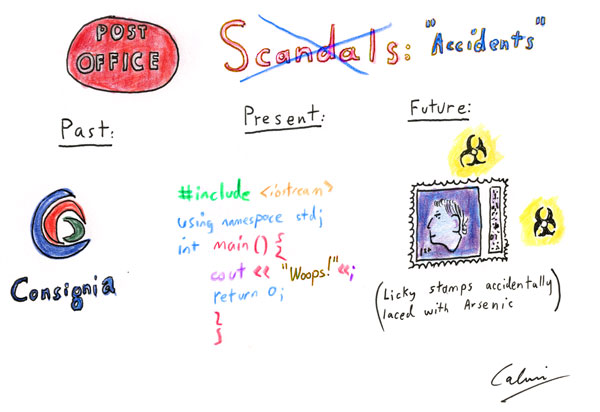 POST
OFFICE
Scandals: "Accidents"
Past:
Present:
Future:
Consignia
#include <iostream>
using namespace std;
int main() {
cout << "Woops!"<<;
return 0;
}
}
(Licky stamps accidentally
laced with Arsenic)